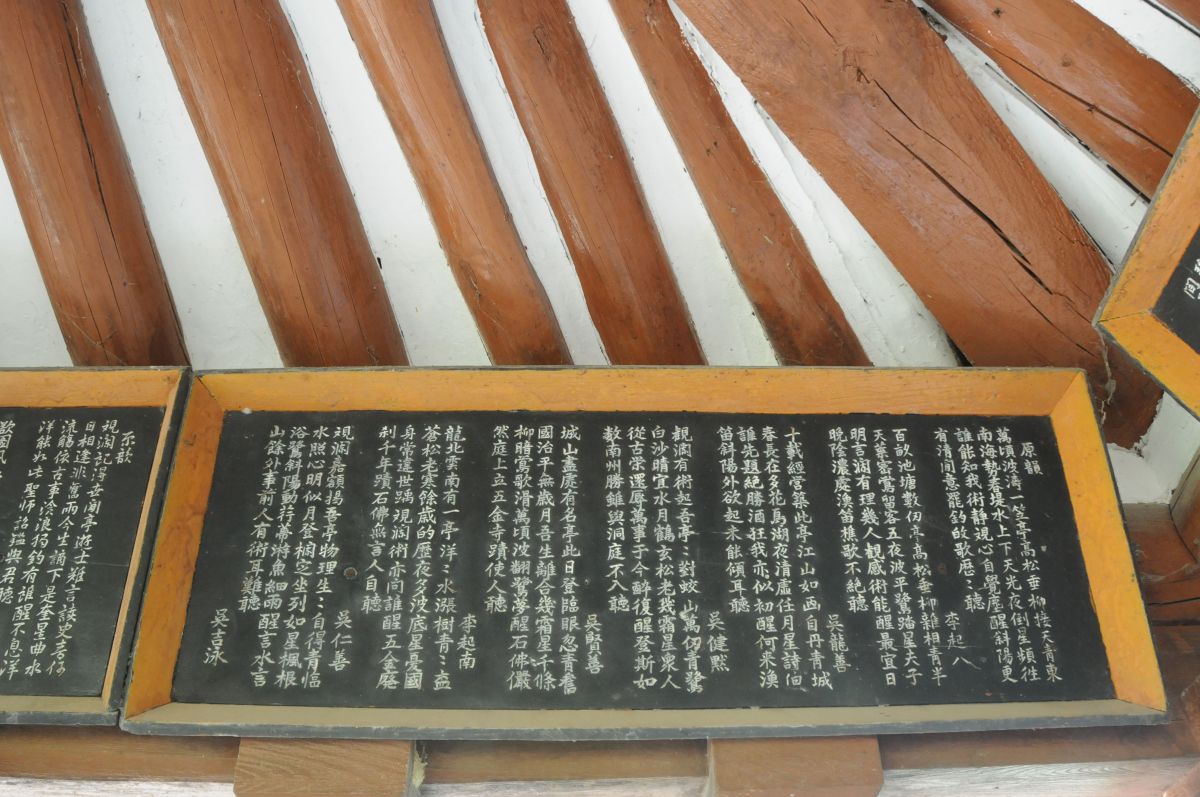 原韻
萬頃波濤一笠亭高松垂柳接天青東
南海勢若堤水上下天光夜倒星頻往
誰能知我術靜視心自覺塵醒斜陽更
有清閒意罷釣放歌歷〻聽 李起八
百畝池塘數仞亭高松垂柳最相青半
天華密鶯留客五夜波平鷺踏星天子
明言澗有理幾人觀感術能醒最宜日
晩陰濃處漁笛樵歌不絶聽 吳龍善
十載經營築此亭江山如画自丹青城
春長在多花鳥湖夜清虛任月星詩向
誰先題絶勝酒狂我亦似初醒何來漁
笛斜陽外欲起未能傾耳聽 吳健默
觀澗有術起吾亭〻對蛟山萬仞青鷺
白沙晴宜水月鶴玄松老幾霜星衆人
從古榮還辱萬事于今醉復醒登斯如
數南州勝錐與洞庭不入聽 吳賢善
城山盡處有名亭此日登臨眼忽青奮
國治平無歲月吾生離合幾霜星千條
柳暗鶯歌滑萬頃波翻鷺夢醒石佛儼
然庭上立五金寺蹟使人聽 李起南
龍北雲南有一亭洋〻水漲樹青〻
蒼松老寒餘歲的歷夜多波底星憂國
身常違世踽 澗術亦向誰醒五金廢
刹千年蹟石佛無言人自聽 吳仁善
視澗嘉額揭吾亭物理生〻自得青臨
水照心明似月登欄定坐列如星楓根
浴鷺斜陽動荇帶游魚細雨醒言水言
山餘外事前人有術耳難聽 吳吉泳
視澗記得 聞亭遊士難言該史青何
日相逢非舊雨今生謫下是奎星曲水
流觴依古事滄浪獨釣有誰醒不息洋
洋能如 聖師詔 與君聽